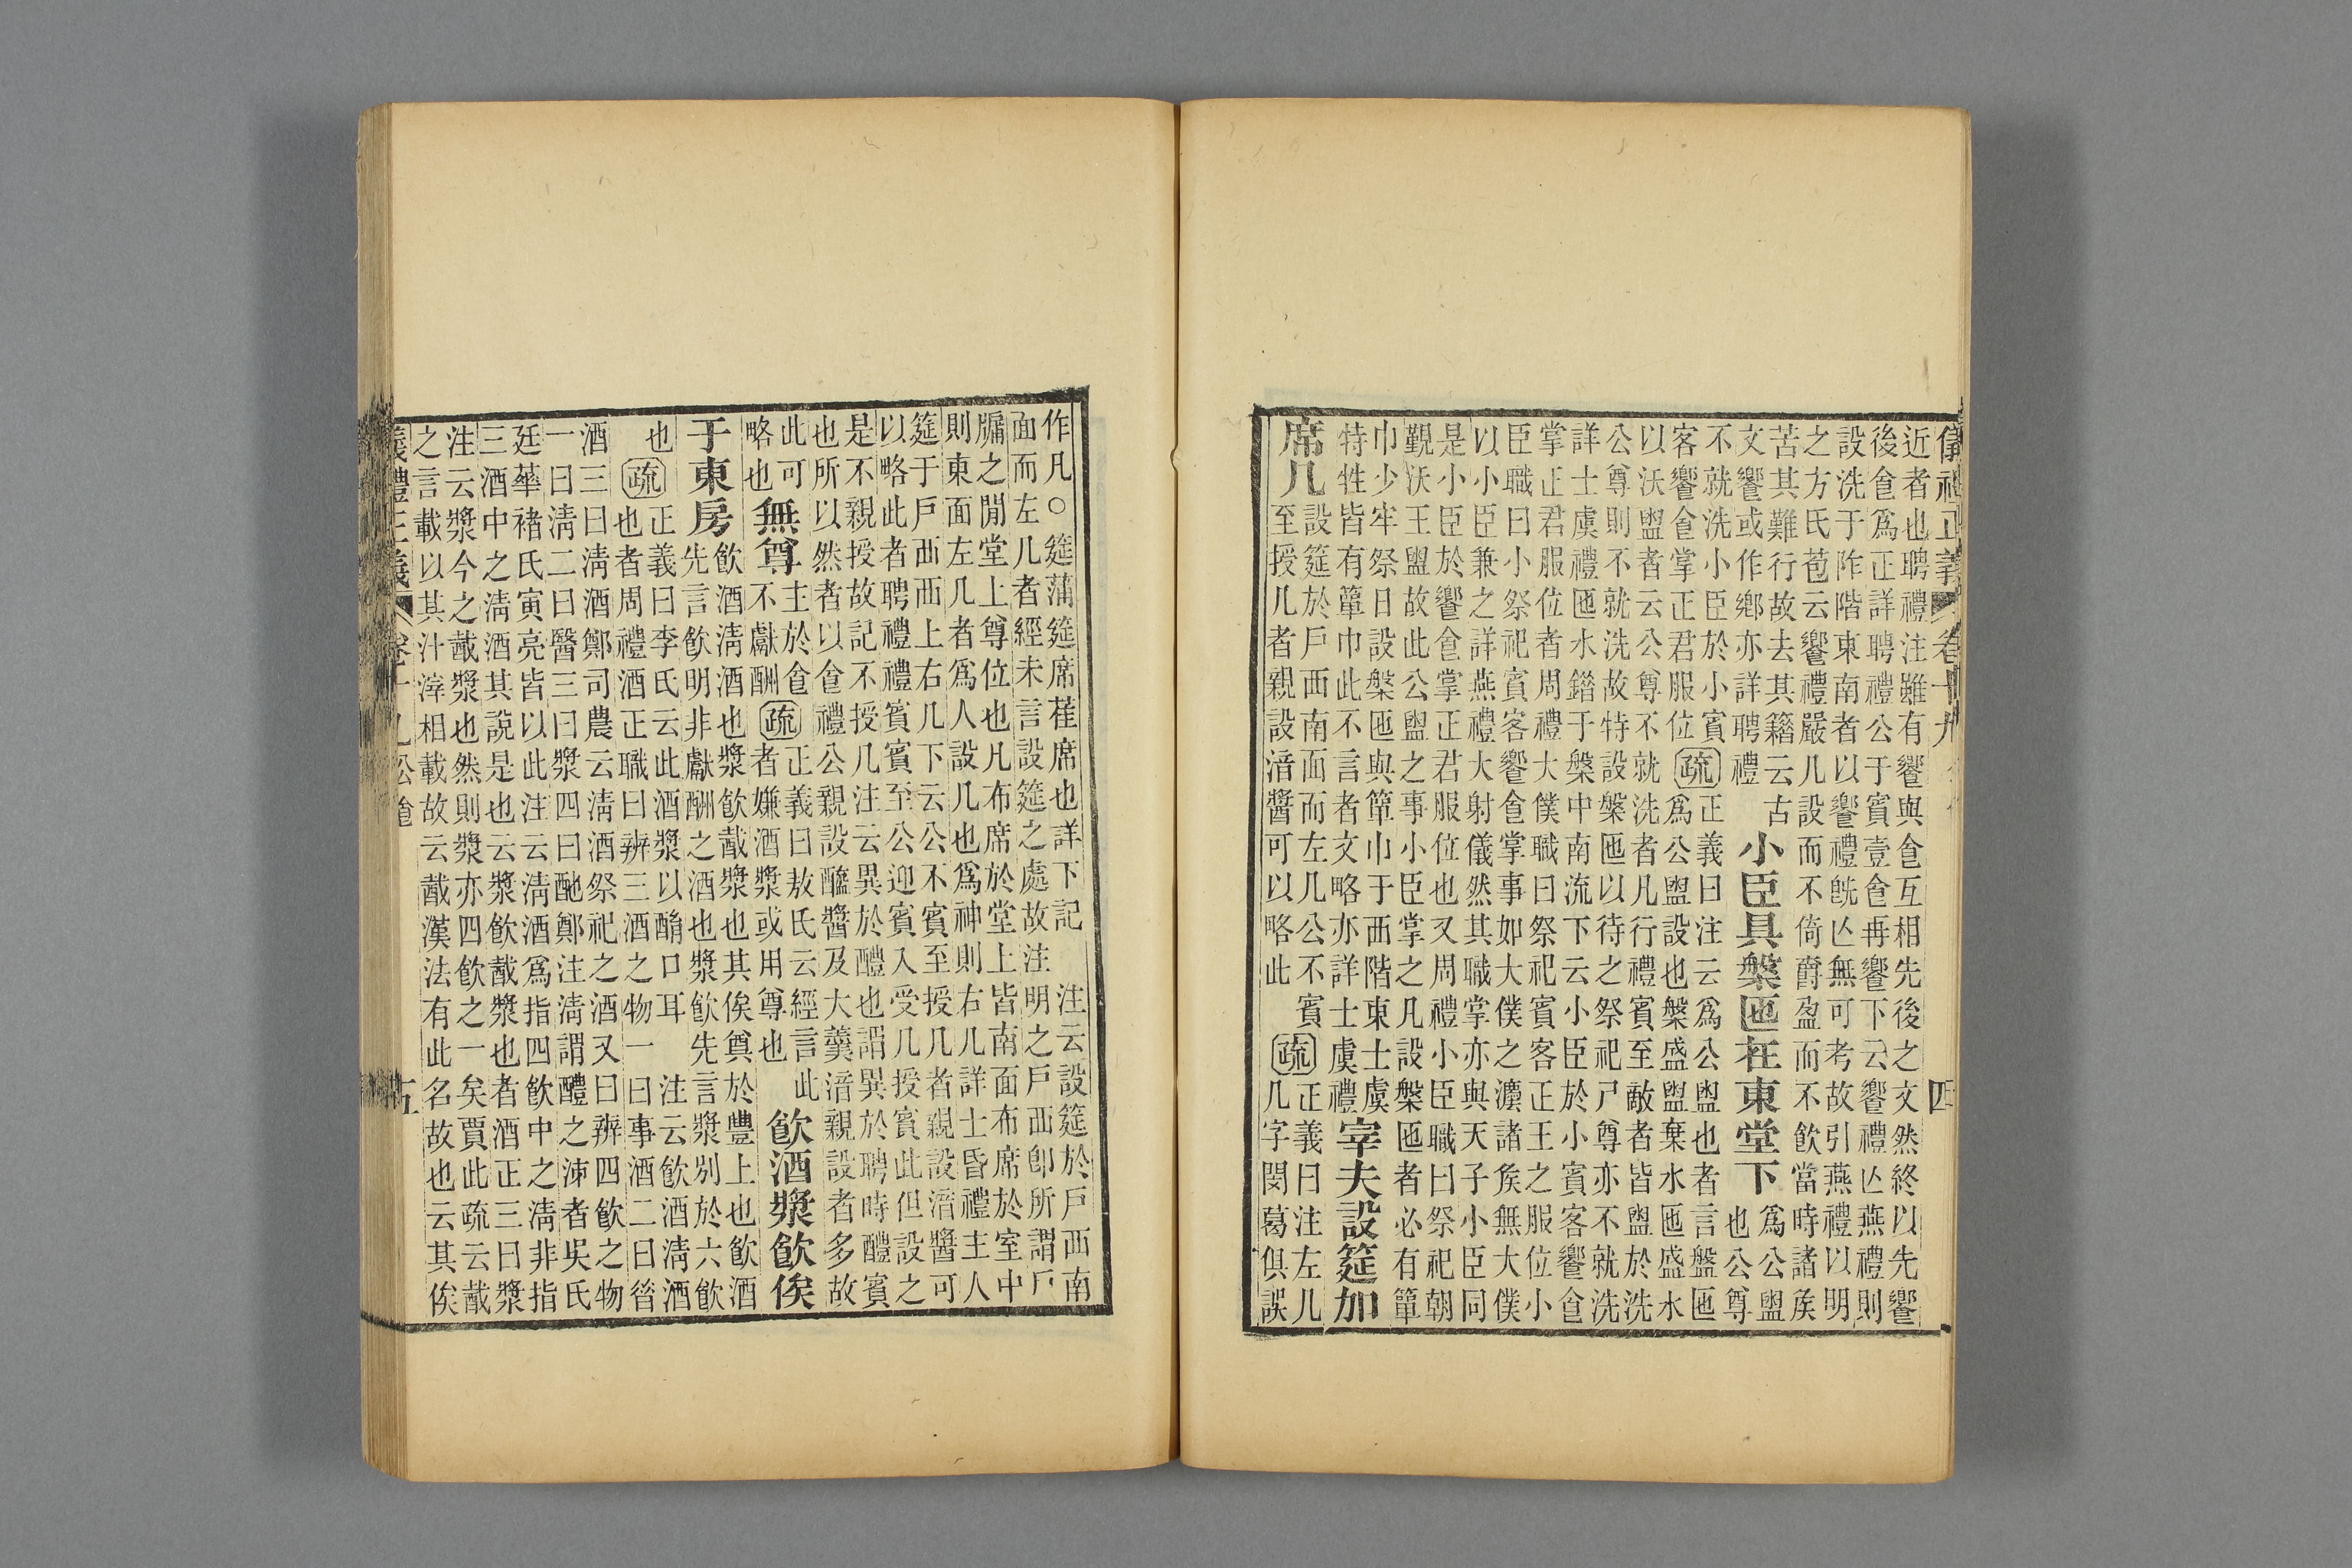 儀禮正義 卷十九 四
近者也聘禮注雖有饗與食互相先後之文然終以先饗
後食爲正詳聘禮公于賓壹食再饗下云饗禮亾燕禮則
設洗于阼階東南者以饗禮旣亾無可考故引燕禮以明
之方氏苞云饗禮嚴几設而不倚爵盈而不飮當時諸侯
苦其難行故去其籍云古
文饗或作鄕亦詳聘禮
小臣具槃匜在東堂下
爲公盥
也公尊
不就洗小臣於小賓
客饗食掌正君服位
疏
正義曰注云爲公盥也者言盤匜
爲公盥設也槃盛盥棄水匜盛水
以沃盥者云公尊不就洗者凡行禮賓至敵者皆盥於洗
公尊則不就洗故特設槃匜以待之祭祀尸尊亦不就洗
詳士虞禮匜水錯于槃中南流下云小臣於小賓客饗食
掌正君服位者周禮大僕職曰祭祀賓客正王之服位小
臣職曰小祭祀賓客饗食掌事如大僕之灋諸矦無大僕
以小臣兼之詳燕禮大射儀然其職掌亦與天子小臣同
是小臣於饗食掌正君服位也又周禮小臣職曰祭祀朝
覲沃王盥故此公盥之事小臣掌之凡設槃匜者必有簞
巾少牢祭日設槃匜與簞巾于西階東士虞
特牲皆有簞巾此不言者文略亦詳士虞禮
宰夫設筵加
席几
設筵於戶西南面而左几公不賓
至授几者親設湆醬可以略此
疏
正義曰注左几
几字閔葛俱誤
作凡○筵蒲筵席萑席也詳下記 注云設筵於戶西南
面而左几者經未言設筵之處故注明之戶西卽所謂戶
牖之閒堂上尊位也凡布席於堂上皆南面布席於室中
則東面左几者爲人設几也爲神則右几詳士昏禮主人
筵于戶西西上右几下云公不賓至授几者親設湆醬可
以略此者聘禮禮賓賓至公迎賓入受几授賓此但設之
是不親授故記不授几注云異於醴也謂異於聘時醴賓
也所以然者以食禮公親設醯醬及大羹湆親設者多故
此可
略也
無尊
主於食
不獻酬
疏
正義曰敖氏云經言此
者嫌酒漿或用尊也
飮酒漿飮俟
于東房
飮酒淸酒也漿飮酨漿也其俟奠於豐上也飮酒
先言飮明非獻酬之酒也漿飮先言漿別於六飮
也
疏
正義曰李氏云此酒漿以酳口耳 注云飮酒淸酒
也者周禮酒正職曰辨三酒之物一曰事酒二曰昝
酒三曰淸酒鄭司農云淸酒祭祀之酒又曰辨四飮之物
一曰淸二曰醫三曰漿四曰酏鄭注淸謂醴之泲者吳氏
廷華褚氏寅亮皆以此注云淸酒爲指四飮中之淸非指
三酒中之淸酒其說是也云漿飮酨漿也者酒正三曰漿
注云漿今之酨漿也然則漿亦四飮之一矣賈此疏云酨
之言載以其汁滓相載故云酨漢法有此名故也云其俟